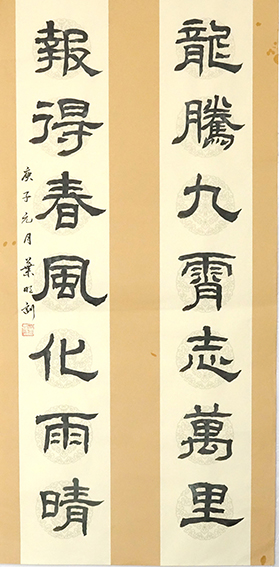 龍騰九霄志萬里
報得春風化雨晴
庚子元月 葉明利